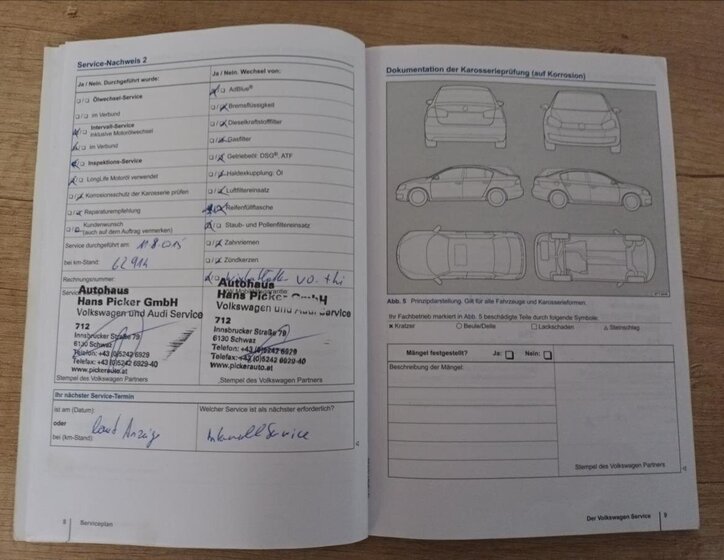 Service-Nachweis 2
Ja / Nein. Durchgeführt wurde:
Ölwechsel-Service
im Verbund
Intervall-Service
inklusive Motorölwechsel
im Verbund
Inspektions-Service
LongLife Motoröl verwendet
Korrosionsschutz der Karosserie prüfen
Reparaturempfehlung
Kundenwunsch
(auch auf dem Auftrag vermerken)
Service durchgeführt am:
bei km-Stand: 62914
Rechnungsnummer:
Ja / Nein. Wechsel von:
AdBlue®
Bremsflüssigkeit
Dieselkraftstofffilter
Gasfilter
Getriebeöl: DSG®, ATF
Haldexkupplung: Öl
Luftfiltereinsatz
Reifenfüllflasche
Staub- und Pollenfiltereinsatz
Zahnriemen
Zündkerzen
Autohaus
Hans Picker GmbH
Volkswagen und Audi Service
712
Innsbrucker Straße 79
6130 Schwaz
Telefon: +43 (0)5242 6929
Telefax: +43 (0)5242 6929-40
www.pickerauto.at
Stempel des Volkswagen Partners
Autohaus
Hans Picker GmbH
Volkswagen und Audi Service
712
Innsbrucker Straße 79
6130 Schwaz
Telefon: +43 (0)5242 6929
Telefax: +43 (0)5242 6929-40
www.pickerauto.at
Stempel des Volkswagen Partners
Ihr nächster Service-Termin
ist am (Datum)
oder
bei (km-Stand): laut Anzeige
Welcher Service ist als nächster erforderlich?
Intervall Service
8 Serviceplan
Dokumentation der Karosserieprüfung (auf Korrosion)
Abb. 5 Prinzipdarstellung. Gilt für alle Fahrzeuge und Karosserieformen.
Ihr Fachbetrieb markiert in Abb. 5 beschädigte Teile durch folgende Symbole:
× Kratzer ○ Beule/Delle □ Lackschaden △ Steinschlag
Mängel festgestellt? Ja: Nein:
Beschreibung der Mängel:
Stempel des Volkswagen Partners
Der Volkswagen Service 9